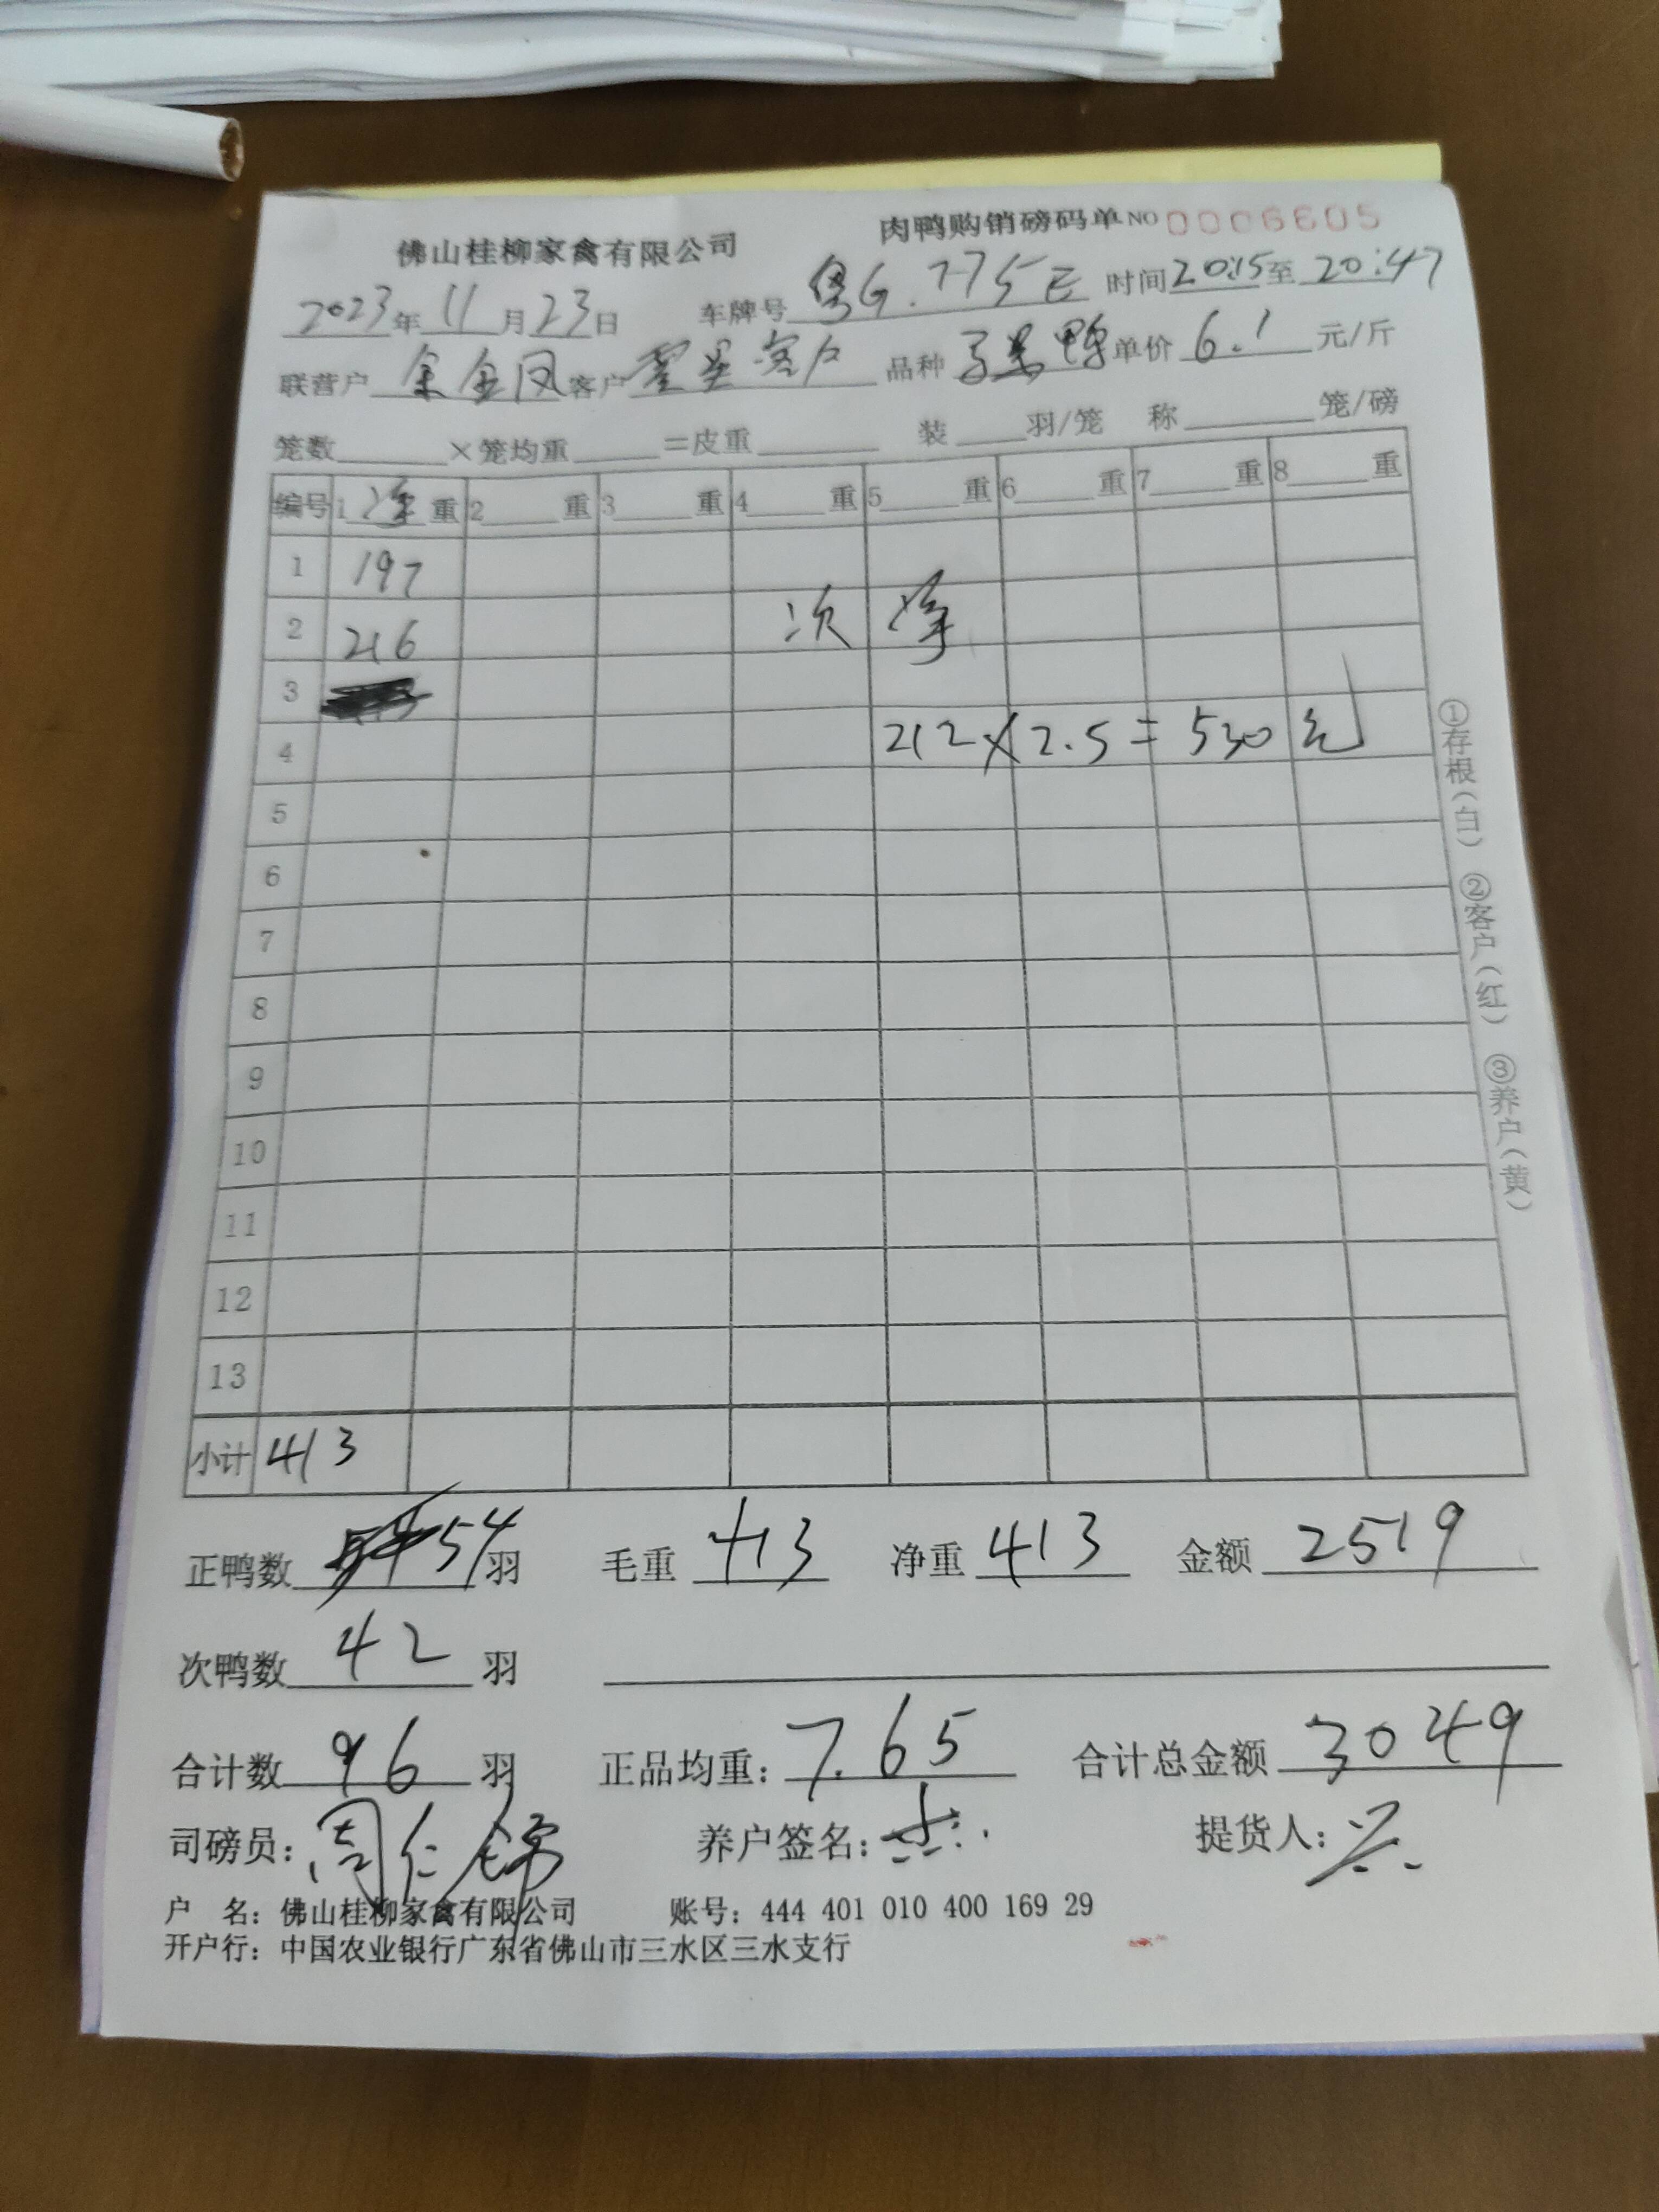 佛山桂柳家禽有限公司 肉鸭购销磅码单 NO 0006605
2023年11月23日 车牌号 粤G.775E 时间20:15至20:47
联营户 余金凤 客户 零星客户 品种 鸭 单价 6.1 元/斤
笼数 ×笼均重 =皮重 装 羽/笼 称 笼/磅
编号 1 净重 2 重 3 重 4 重 5 重 6 重 7 重 8 重
1 197
2 216 次净
3
4 212×2.5=530元
5
6
7
8
9
10
11
12
13
小计 413
正鸭数 54 羽 毛重 413 净重 413 金额 2519
次鸭数 42 羽
合计数 96 羽 正品均重: 7.65 合计总金额 3049
司磅员: 周仁锦 养户签名: 提货人:
户 名: 佛山桂柳家禽有限公司 账号: 444 401 010 400 169 29
开户行: 中国农业银行广东省佛山市三水区三水支行
①存根(白) ②客户(红) ③养户(黄)